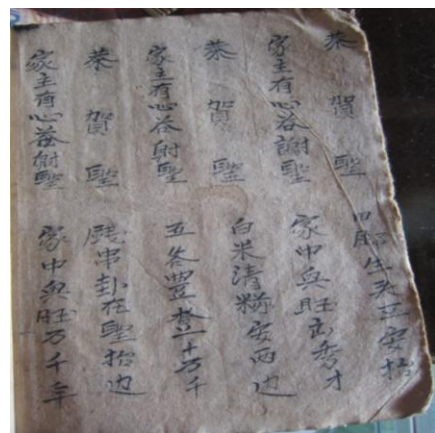 恭賀聖 四脚生头立安抬
家主有心答謝聖 家中兴旺出秀才
恭賀聖 白米清安两边
家主有心答射聖 五各豐登十万千
恭賀聖 串卦在聖抬边
家主有心答射聖 家中兴旺万千年